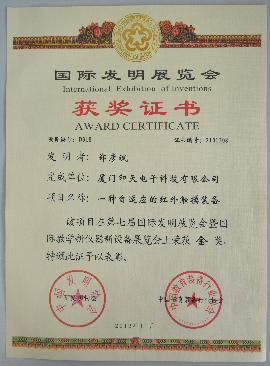 国际发明展览会
International Exhibition of Inventions
获奖证书
AWARD CERTIFICATE
发明者：郑彦斌
完成单位：厦门和天电子科技有限公司
项目名称：一种自适应的红外触摸装置
该项目在第七届国际发明展览会暨国
际教学新仪器新设备展览会上荣获 金 奖，
特颁此证予以表彰。
中国发明协会